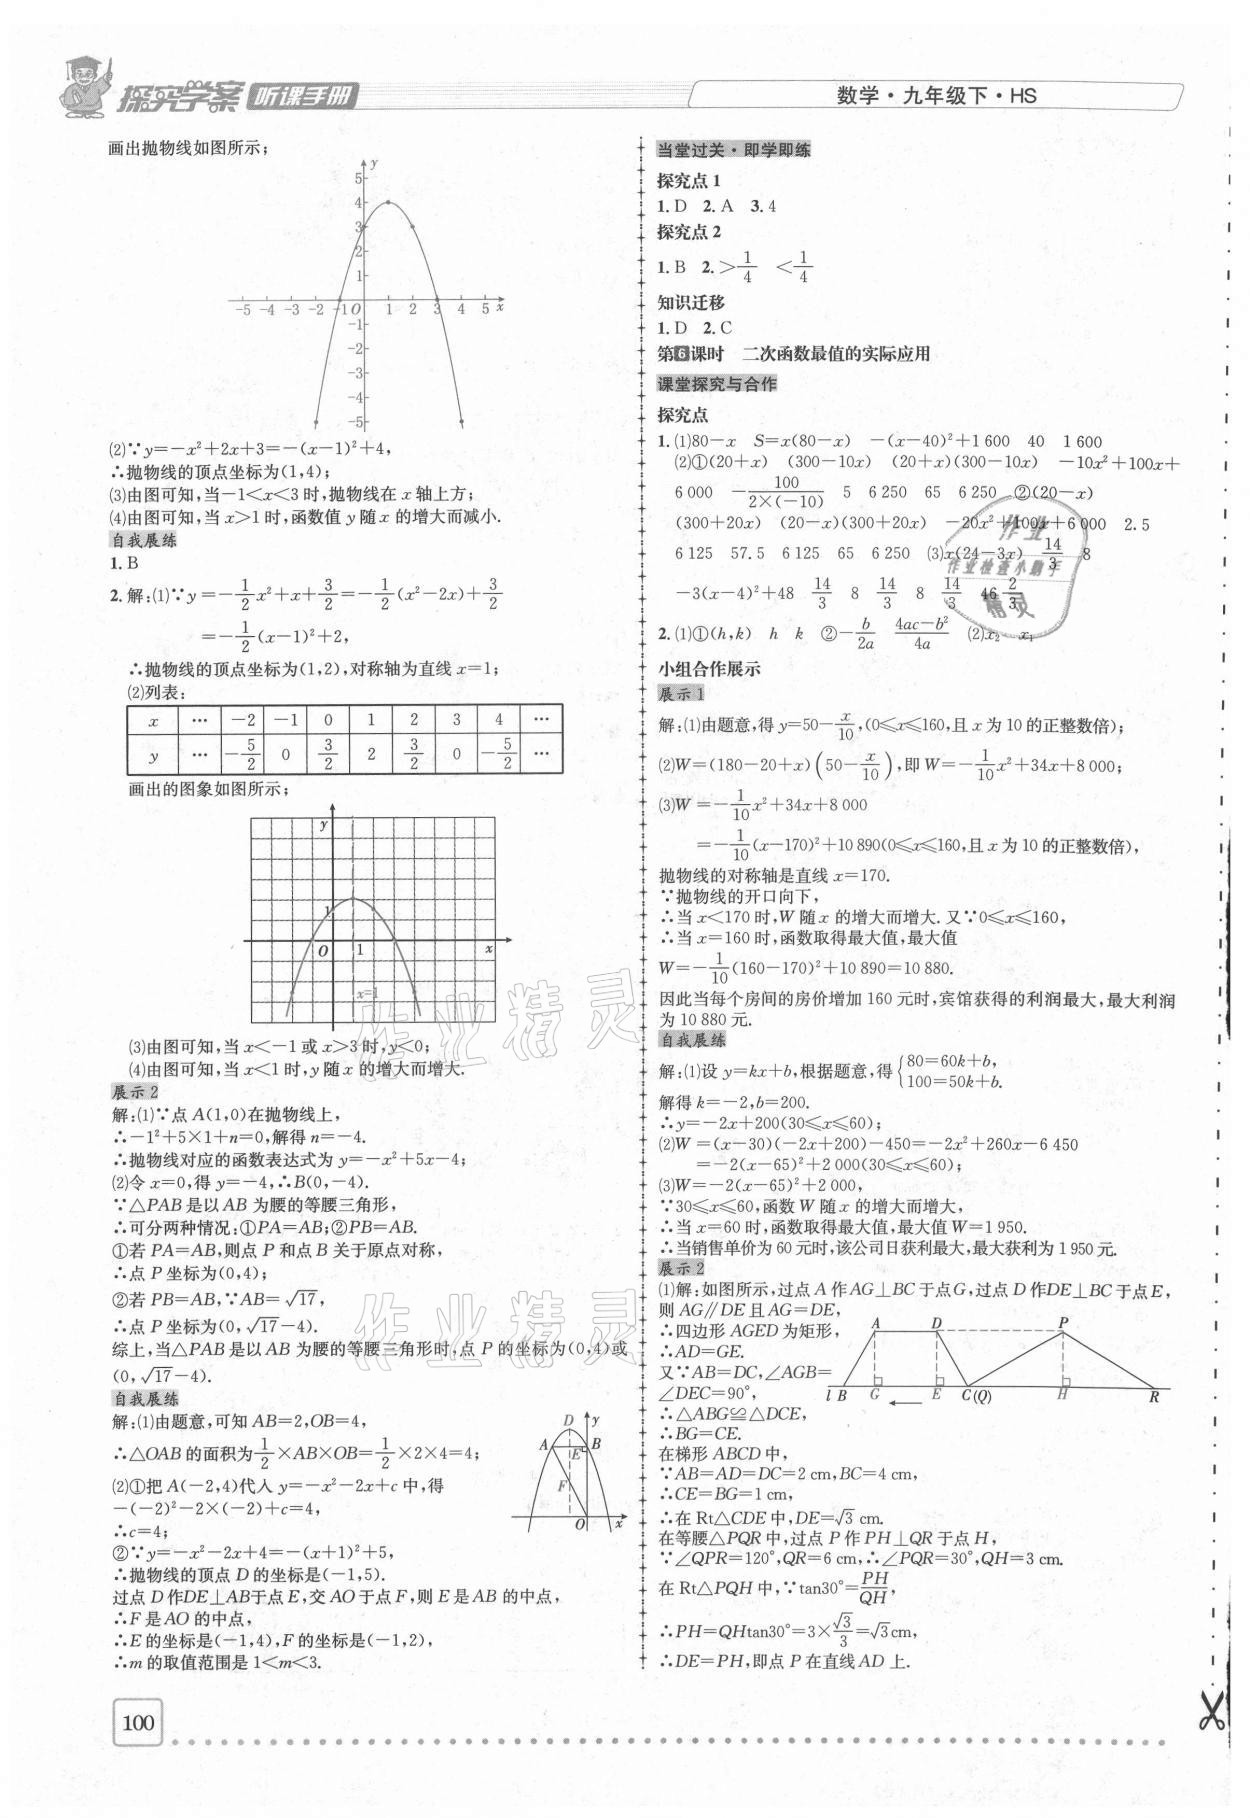 探究学案 听课手册
数学·九年级下·HS
画出抛物线如图所示;
(2)∵y=-x²+2x+3=-(x-1)²+4,
∴抛物线的顶点坐标为(1,4);
(3)由图可知,当-1<x<3时,抛物线在x轴上方;
(4)由图可知,当x>1时,函数值y随x的增大而减小.
自我展练
1.B
2.解:(1)∵y=-1/2x²+x+3/2=-1/2(x²-2x)+3/2
=-1/2(x-1)²+2,
∴抛物线的顶点坐标为(1,2),对称轴为直线x=1;
(2)列表:
x … -2 -1 0 1 2 3 4 …
y … -5/2 0 3/2 2 3/2 0 -5/2 …
画出的图象如图所示;
y
1
O 1 x
x=1
(3)由图可知,当x<-1或x>3时,y<0;
(4)由图可知,当x<1时,y随x的增大而增大.
展示2
解:(1)∵点A(1,0)在抛物线上,
∴-1²+5×1+n=0,解得n=-4.
∴抛物线对应的函数表达式为y=-x²+5x-4;
(2)令x=0,得y=-4,∴B(0,-4).
∵△PAB是以AB为腰的等腰三角形,
∴可分两种情况:①PA=AB;②PB=AB.
①若PA=AB,则点P和点B关于原点对称,
∴点P坐标为(0,4);
②若PB=AB,∵AB=√17,
∴点P坐标为(0,√17-4).
综上,当△PAB是以AB为腰的等腰三角形时,点P的坐标为(0,4)或
(0,√17-4).
自我展练
解:(1)由题意,可知AB=2,OB=4,
∴△OAB的面积为1/2×AB×OB=1/2×2×4=4;
(2)①把A(-2,4)代入y=-x²-2x+c中,得
-(-2)²-2×(-2)+c=4,
∴c=4;
②∵y=-x²-2x+4=-(x+1)²+5,
∴抛物线的顶点D的坐标是(-1,5).
过点D作DE⊥AB于点E,交AO于点F,则E是AB的中点,
∴F是AO的中点,
∴E的坐标是(-1,4),F的坐标是(-1,2),
∴m的取值范围是1<m<3.
100
当堂过关·即学即练
探究点1
1.D 2.A 3.4
探究点2
1.B 2.>1/4 <1/4
知识迁移
1.D 2.C
第6课时 二次函数最值的实际应用
课堂探究与合作
探究点
1.(1)80-x S=x(80-x) -(x-40)²+1 600 40 1 600
(2)①(20+x) (300-10x) (20+x)(300-10x) -10x²+100x+
6 000 -100/2×(-10) 5 6 250 65 6 250 ②(20-x)
(300+20x) (20-x)(300+20x) -20x²+100x+6 000 2.5
6 125 57.5 6 125 65 6 250 (3)x(24-3x) 14/3 8
-3(x-4)²+48 14/3 8 14/3 8 14/3 46 2/3
2.(1)①(h,k) h k ②-b/2a 4ac-b²/4a (2)x₂ x₁
小组合作展示
展示1
解:(1)由题意,得y=50-x/10,(0≤x≤160,且x为10的正整数倍);
(2)W=(180-20+x)(50-x/10),即W=-1/10x²+34x+8 000;
(3)W=-1/10x²+34x+8 000
=-1/10(x-170)²+10 890(0≤x≤160,且x为10的正整数倍),
抛物线的对称轴是直线x=170.
∵抛物线的开口向下,
∴当x<170时,W随x的增大而增大.又∵0≤x≤160,
∴当x=160时,函数取得最大值,最大值
W=-1/10(160-170)²+10 890=10 880.
因此当每个房间的房价增加160元时,宾馆获得的利润最大,最大利润
为10 880元.
自我展练
解:(1)设y=kx+b,根据题意,得{80=60k+b,
100=50k+b.
解得k=-2,b=200.
∴y=-2x+200(30≤x≤60);
(2)W=(x-30)(-2x+200)-450=-2x²+260x-6 450
=-2(x-65)²+2 000(30≤x≤60);
(3)W=-2(x-65)²+2 000,
∵30≤x≤60,函数W随x的增大而增大,
∴当x=60时,函数取得最大值,最大值W=1 950.
∴当销售单价为60元时,该公司日获利最大,最大获利为1 950元.
展示2
(1)解:如图所示,过点A作AG⊥BC于点G,过点D作DE⊥BC于点E,
则AG∥DE且AG=DE,
∴四边形AGED为矩形,
∴AD=GE.
又∵AB=DC,∠AGB=
∠DEC=90°,
∴△ABG≌△DCE,
∴BG=CE.
在梯形ABCD中,
∵AB=AD=DC=2 cm,BC=4 cm,
∴CE=BG=1 cm,
∴在Rt△CDE中,DE=√3 cm.
在等腰△PQR中,过点P作PH⊥QR于点H,
∵∠QPR=120°,QR=6 cm,∴∠PQR=30°,QH=3 cm.
在Rt△PQH中,∵tan30°=PH/QH,
∴PH=QHtan30°=3×√3/3=√3cm,
∴DE=PH,即点P在直线AD上.
A D P
l B G E C(Q) H R
作业精灵
作业精灵
作业
作业检查小助手
精灵